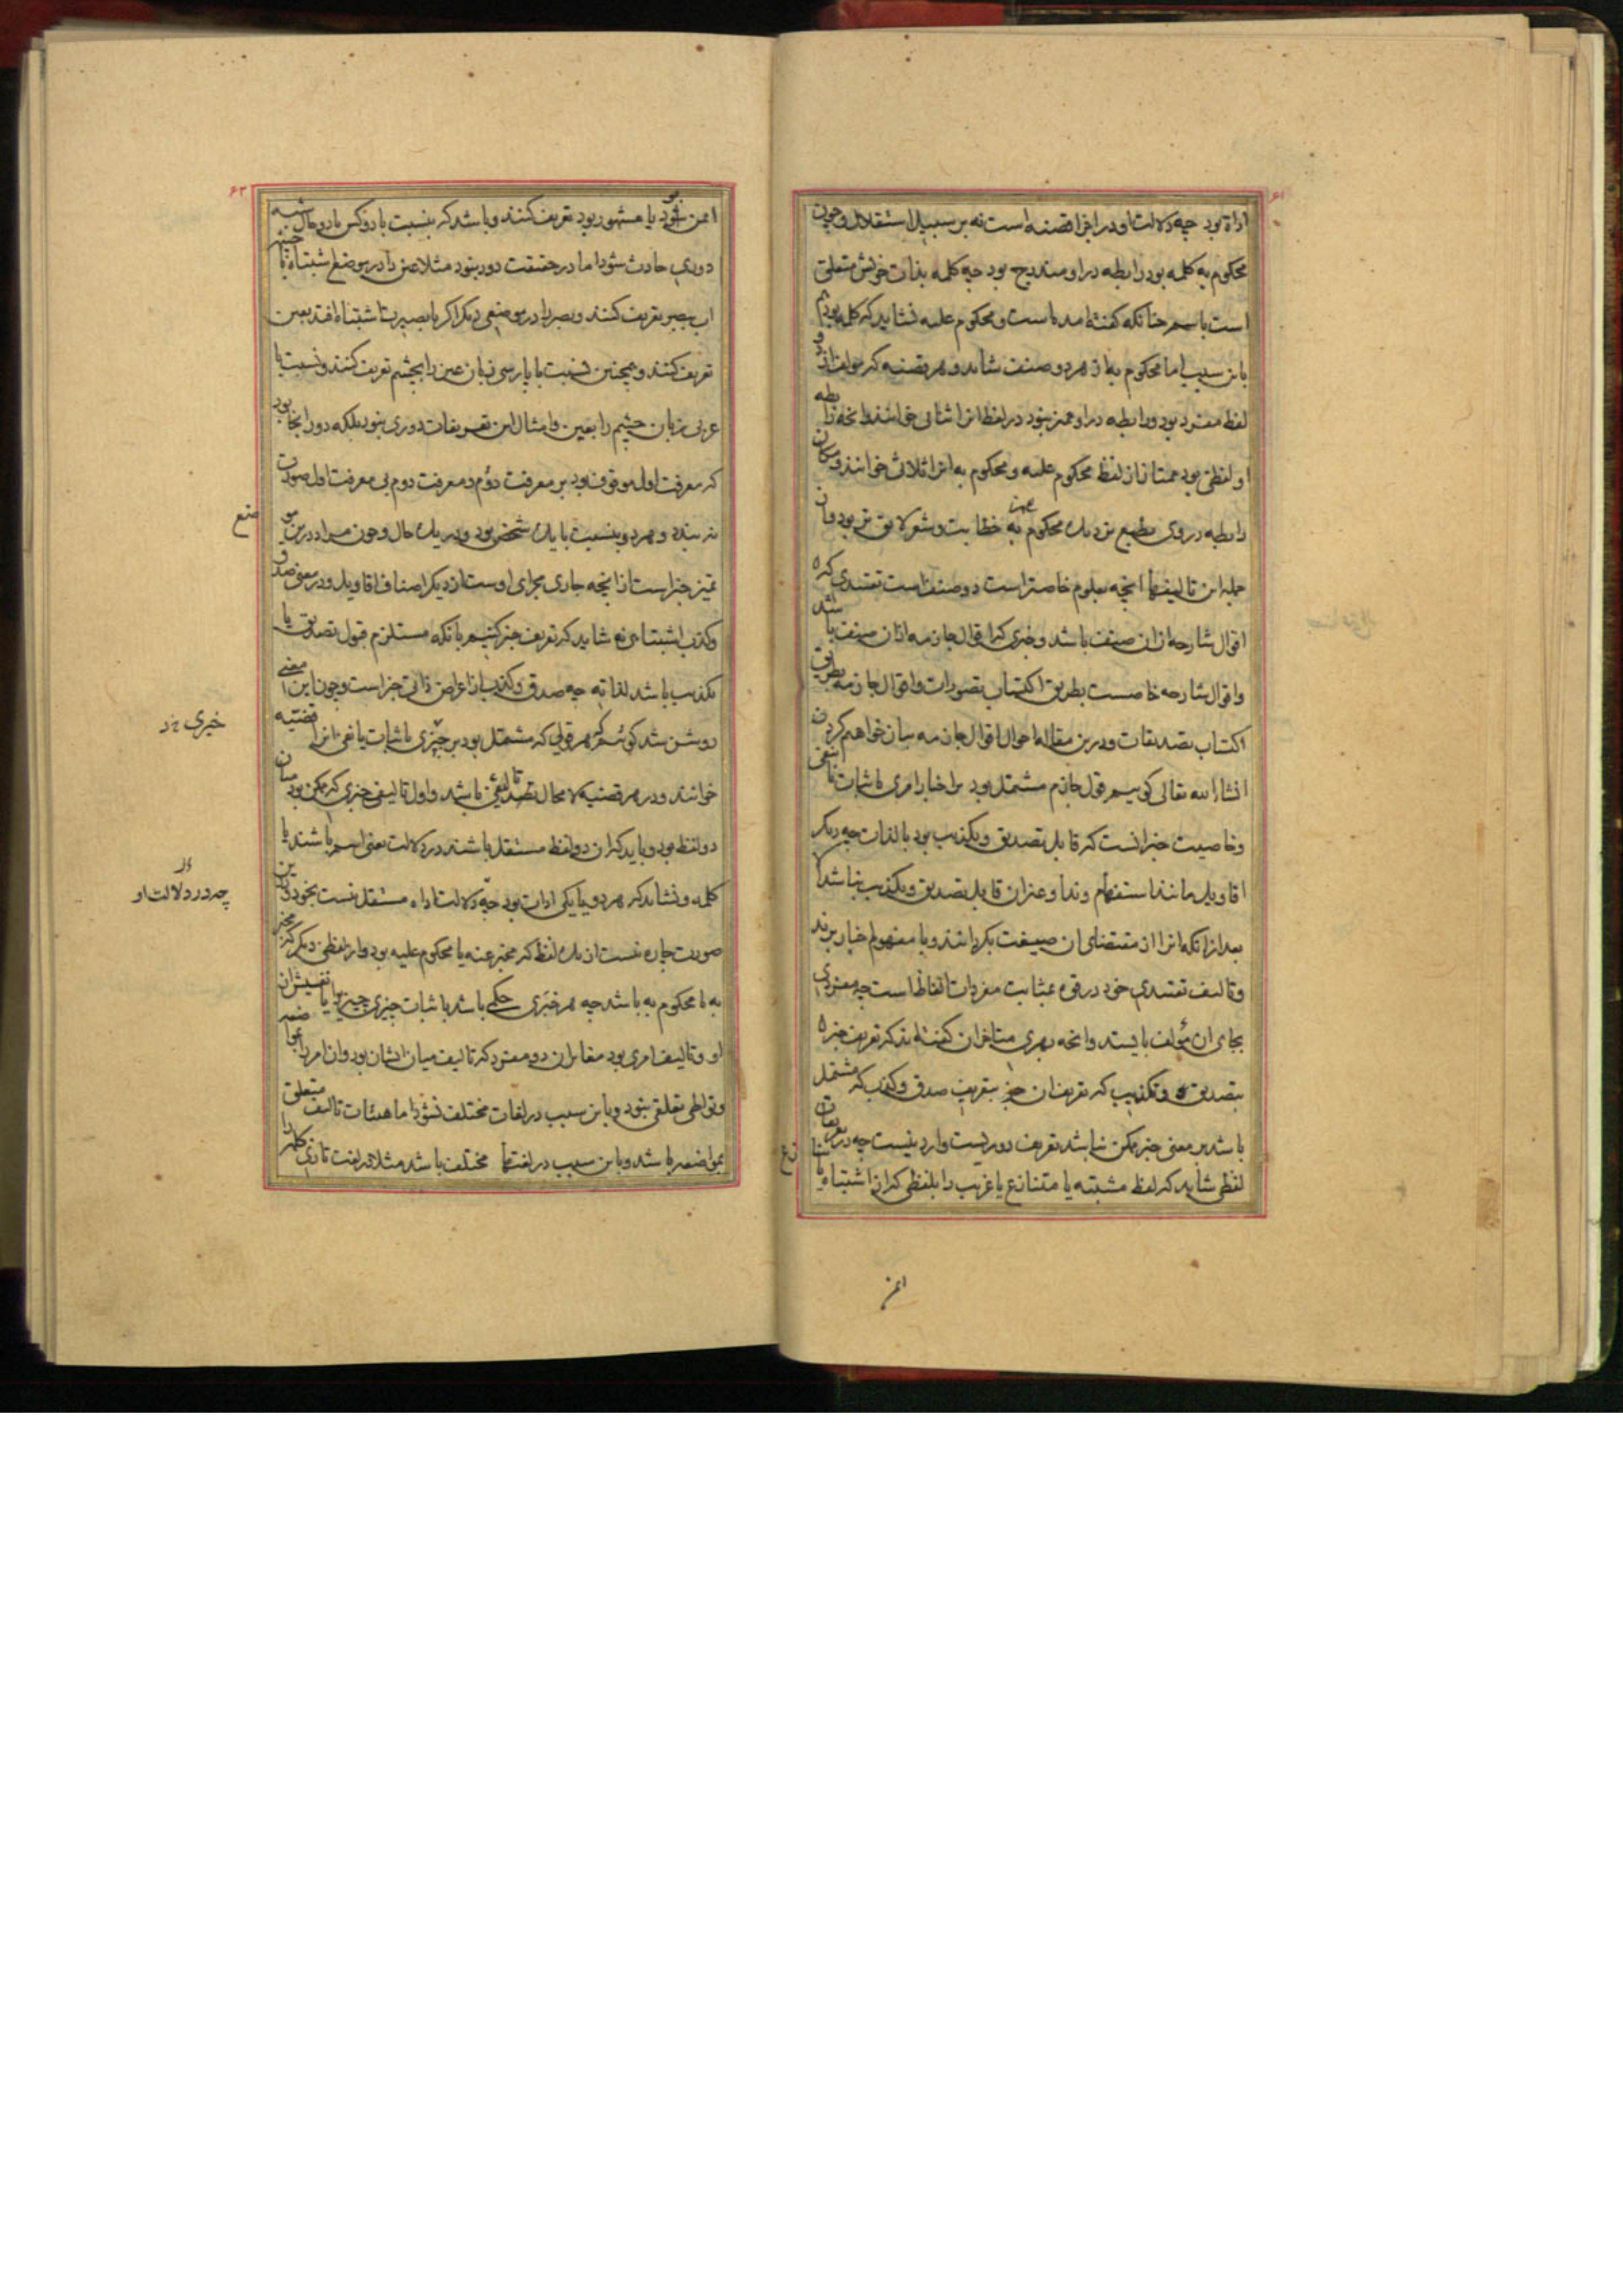 ۶۱
اداة بود چه دلالت او در اجزا قضیه است نه بر سبیل استقلال و چون
محکوم به کلمه بود رابطه در او مندرج بود چه کلمه بذات خویش متعلق
است باسم چنانکه گفته امده است و محکوم علیه نشاید که کلمه بود هم
باین سبب اما محکوم به از هر دو صنف شاید و هر قضیه که مولف از دو
لفظ مفرد بود و رابطه در او ممیز نبود در لفظ انرا ثنائی خوانند و انچه رابطه
او لفظی بود ممتاز از لفظ محکوم علیه و محکوم به انرا ثلاثی خوانند و مکان
رابطه در وی بطبع نزدیک محکوم به خطابت و شعر لایق تر بود و از
جمله این تالیفها انچه بعلوم خاصتر است دو صنف است تقییدی که
اقوال شارحه از ان صنف باشد و خبری که اقوال جازمه از ان صنف باشد
و اقوال شارحه خاصست بطریق اکتساب تصورات و اقوال جازمه بطریق
اکتساب تصدیقات و درین مقاله احوال اقوال جازمه بیان خواهیم کردن
انشاء الله تعالی گوییم قول جازم مشتمل بود بر اخبار امری باثبات یا نفی
و خاصیت خبر انست که قابل تصدیق و تکذیب بود بالذات چه دیگر
اقاویل مانند استفهام و ندا و غیر ان قابل تصدیق و تکذیب نباشد الا
بعد از انکه انرا از مقتضای ان صیغت بگردانند و با مفهوم اخبار برند
و تالیف تقییدی خود در قوه بمثابت مفردات الفاظ است چه مفردی
بجای ان مولف بایستد و انچه بهری متاخران گفته اند که تعریف خبر
بتصدیق و تکذیب که تعریف ان جز بتعریف صدق و کذب که مشتمل
باشد بر معنی خبر ممکن نباشد تعریف دوریست وارد نیست چه در تعریفات
لفظی شاید که لفظ مشتبه یا متنازع یا غریب را بلفظی که از اشتباه یا
ایمن
۶۲
ایمن بود یا مشهور بود تعریف کنند و باشد که بنسبت با دو کس یا دو حال شبه
دوری حادث شود اما در حقیقت دور نبود مثلا عین را در موضع اشتباه با چشمه
اب ببصر تعریف کنند و بصر را در موضعی دیگر اگر با بصیرت اشتباه افتد بعین
تعریف کنند و همچنین نسبت با پارسی زبان عین را بچشم تعریف کنند و نسبت با
عربی زبان چشم را بعین و امثال این تعریفات دوری نبود بلکه دور انجا بود
که معرفت اول موقوف بود بر معرفت دوم و معرفت دوم بی معرفت اول صورت
نه بندد و هر دو بنسبت با یک شخص بود و در یک حال و چون مراد درین مو
ضع
تمیز خبر است از انچه جاری مجرای اوست از دیگر اصناف اقاویل و در معنی صدق و
کذب اشتباهی نه شاید که تعریف خبر کنیم بانکه مستلزم قبول تصدیق یا
تکذیب باشد لذاته چه صدق و کذب از اعراض ذاتی خبر است و چون این معنی
روشن شد گوئیم که هر قولی که مشتمل بود بر خبری باثبات یا نفی انرا قضیه
خبری
خوانند و در هر قضیه لا محال تالیفی باشد و اول تالیفی خبری که ممکن بود میان
دو لفظ بود و باید که ان دو لفظ مستقل باشند در دلالت یعنی اسم باشند یا
کلمه و نشاید که هر دو یا یکی ادات بود چه دلالت اداه مستقل نیست بخود و درین
چه در دلالت او
صورت چاره نیست از یک لفظ که مخبر عنه یا محکوم علیه بود و از لفظی دیگر که مخبر
به یا محکوم به باشد چه هر خبری حکمی باشد باثبات چیزی چیزی را یا نفیش از ان
او و تالیف امری بود مغایر ان دو مفرد که تالیف میان ایشان بود و ان امر را بمواضعه
و تواطی تعلقی نبود و باین سبب در لغات مختلف نشود اما هیئات تالیف متعلق
بمواضعه باشد و باین سبب در لغتها مختلف باشد مثلا در لغت تازی کلمه را